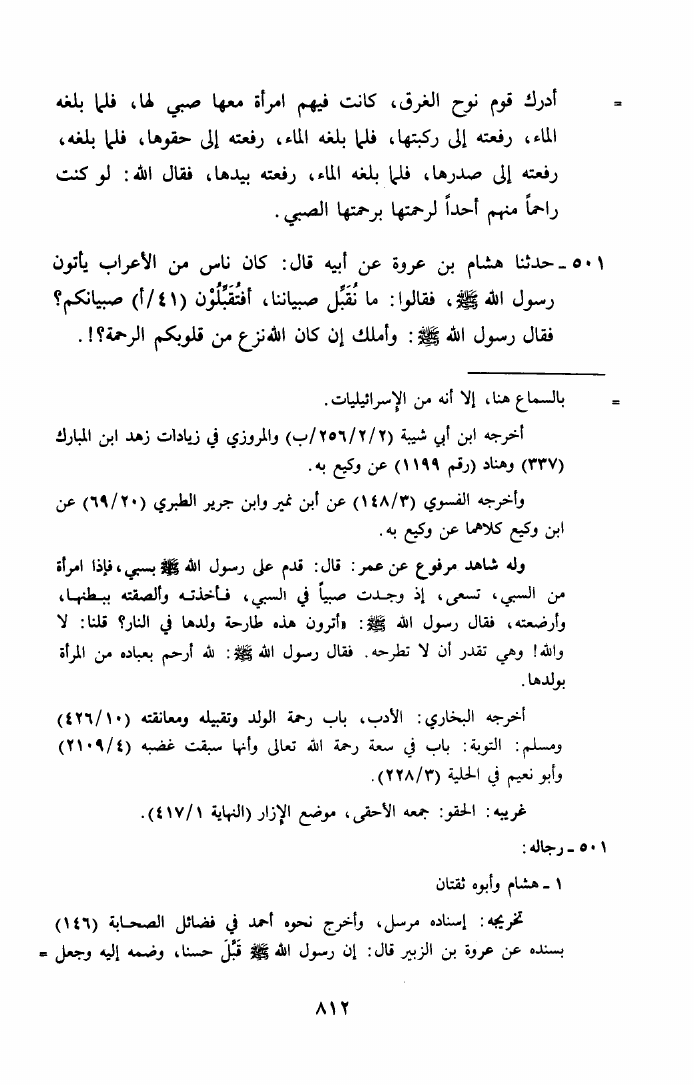 = أدرك قوم نوح الغرق، كانت فيهم امرأة معها صبي لها، فلما بلغه
الماء، رفعته إلى ركبتها، فلما بلغه الماء، رفعته إلى حقوها، فلما بلغه،
رفعته إلى صدرها، فلما بلغه الماء، رفعته بيدها، فقال الله: لو كنت
راحماً منهم أحداً لرحمتها برحمتها الصبي.
٥٠١ ـ حدثنا هشام بن عروة عن أبيه قال: كان ناس من الأعراب يأتون
رسول الله ﷺ، فقالوا: ما نُقَبِّل صبياننا، أفتُقَبِّلُوْن (٤١/أ) صبيانكم؟
فقال رسول الله ﷺ: وأملك إن كان الله نزع من قلوبكم الرحمة؟!.
= بالسماع هنا، إلا أنه من الإسرائيليات.
أخرجه ابن أبي شيبة (٢/٢/٢٥٦/ب) والمروزي في زيادات زهد ابن المبارك
(٣٣٧) وهناد (رقم ١١٩٩) عن وكيع به.
وأخرجه الفسوي (٣/١٤٨) عن أبن نمير وابن جرير الطبري (٢٠/٦٩) عن
ابن وكيع كلاهما عن وكيع به.
وله شاهد مرفوع عن عمر: قال: قدم على رسول الله ﷺ بسبي، فإذا امرأة
من السبي، تسعى، إذ وجدت صبياً في السبي، فأخذته وألصقته ببطنها،
وأرضعته، فقال رسول الله ﷺ: «أترون هذه طارحة ولدها في النار؟ قلنا: لا
والله! وهي تقدر أن لا تطرحه. فقال رسول الله ﷺ: لله أرحم بعباده من المرأة
بولدها.
أخرجه البخاري: الأدب، باب رحمة الولد وتقبيله ومعانقته (١٠/٤٢٦)
ومسلم: التوبة: باب في سعة رحمة الله تعالى وأنها سبقت غضبه (٤/٢١٠٩)
وأبو نعيم في الحلية (٣/٢٢٨).
غريبه: الحقو: جمعه الأحقى، موضع الإزار (النهاية ١/٤١٧).
٥٠١ ـ رجاله:
١ ـ هشام وأبوه ثقتان
تخريجه: إسناده مرسل، وأخرج نحوه أحمد في فضائل الصحابة (١٤٦)
بسنده عن عروة بن الزبير قال: إن رسول الله ﷺ قَبَّلَ حسنا، وضمه إليه وجعل =
٨١٢